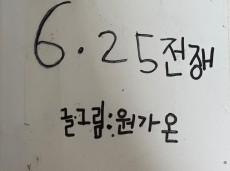 6.25전쟁
글·그림:원가온